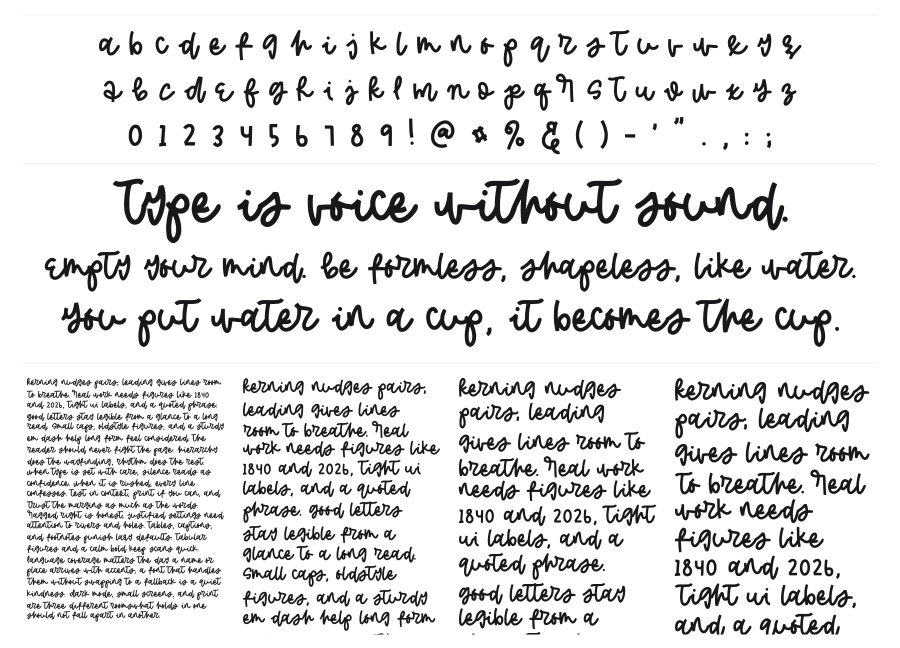 a b c d e f g h i j k l m n o p q r s t u v w x y z
a b c d e f g h i j k l m n o p q r s t u v w x y z
0 1 2 3 4 5 6 7 8 9 ! @ # % & ( ) - ' " . , : ;
Type is voice without sound.
empty your mind. be formless, shapeless, like water.
you put water in a cup, it becomes the cup.
kerning nudges pairs, leading gives lines room
to breathe. Real work needs figures like 1840
and 2026, tight ui labels, and a quoted phrase.
good letters stay legible from a glance to a long
read. small caps, oldstyle figures, and a sturdy
em dash help long form feel considered. the
reader should never fight the page. hierarchy
does the wayfinding, rhythm does the rest.
when type is set with care, silence reads as
confidence. when it is rushed, every line
confesses. test in context, print if you can, and
trust the margins as much as the words.
Ragged right is honest; justified setting need
attention to rivers and holes. tables, captions,
and footnotes punish lazy defaults. tabular
figures and a calm bold keep scans quick.
language coverage matters the day a name or
place arrives with accents; a font that handles
them without swapping to a fallback is a quiet
kindness. dark mode, small screens, and print
are three different rooms; what holds in one
should not fall apart in another.
kerning nudges pairs,
leading gives lines
room to breathe. Real
work needs figures like
1840 and 2026, tight ui
labels, and a quoted
phrase. good letters
stay legible from a
glance to a long read.
small caps, oldstyle
figures, and a sturdy
em dash help long form
kerning nudges
pairs, leading
gives lines room to
breathe. Real work
needs figures like
1840 and 2026, tight
ui labels, and a
quoted phrase.
good letters stay
legible from a
kerning nudges
pairs, leading
gives lines room
to breathe. Real
work needs
figures like
1840 and 2026,
tight ui labels,
and a quoted